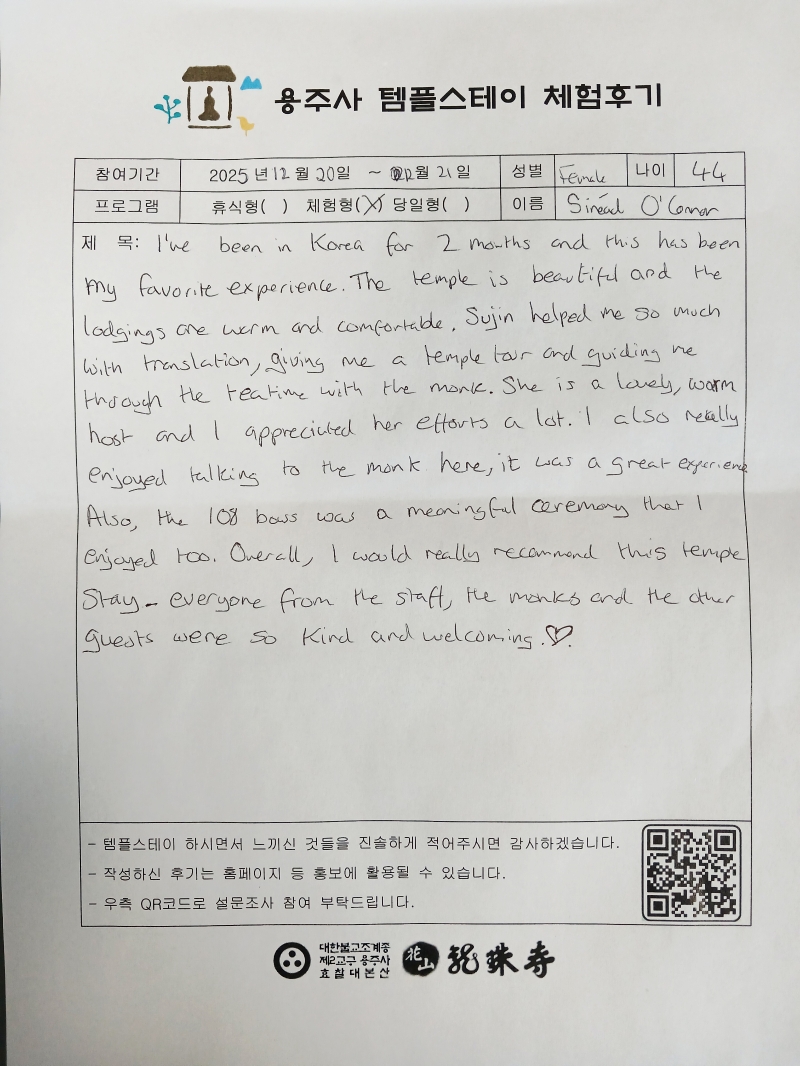 용주사 템플스테이 체험후기
참여기간 2025년 12월 20일 ~ 12월 21일 성별 Female 나이 44
프로그램 휴식형( ) 체험형(X) 당일형( ) 이름 Sinéad O'Connor
제 목: I've been in Korea for 2 months and this has been
my favorite experience. The temple is beautiful and the
lodgings are warm and comfortable. Sujin helped me so much
with translation, giving me a temple tour and guiding me
through the teatime with the monk. She is a lovely, warm
host and I appreciated her efforts a lot. I also really
enjoyed talking to the monk here, it was a great experience
Also, the 108 bows was a meaningful ceremony that I
enjoyed too. Overall, I would really recommend this temple
Stay - everyone from the staff, the monks and the other
guests were so kind and welcoming. ♡
- 템플스테이 하시면서 느끼신 것들을 진솔하게 적어주시면 감사하겠습니다.
- 작성하신 후기는 홈페이지 등 홍보에 활용될 수 있습니다.
- 우측 QR코드로 설문조사 참여 부탁드립니다.
대한불교조계종
제2교구 용주사
효찰대본산
花山 龍珠寺